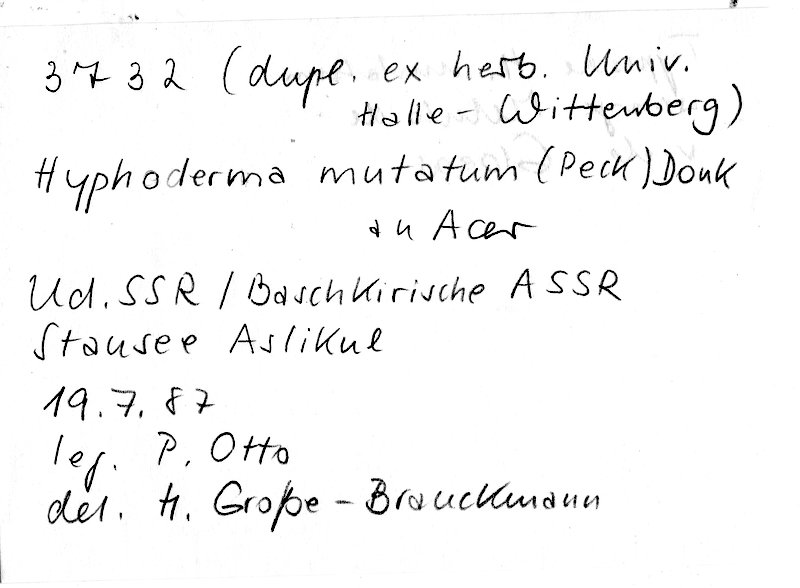 3732 (dupl. ex herb. Univ.
Halle-Wittenberg)
Hyphoderma mutatum (Peck) Donk
an Acer
Ud.SSR / Baschkirische ASSR
Stausee Aslikul
19.7.87
leg. P. Otto
det. H. Große-Brauckmann